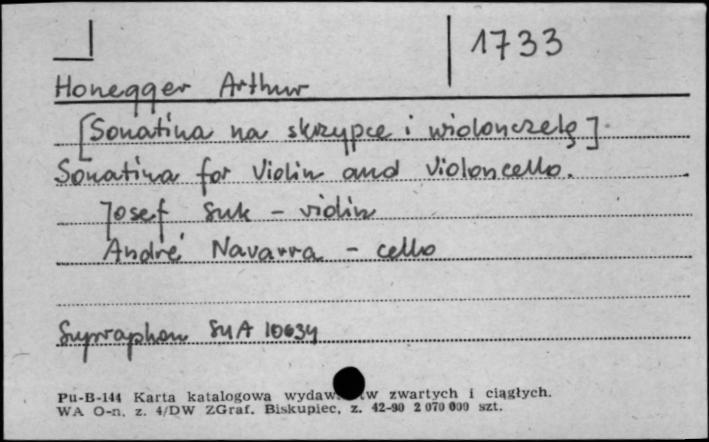 1733
Honegger Arthur
[Sonatina na skrzypce i wiolonczelę]
Sonatina for Violin and Violoncello.
Josef Suk - violin
André Navarra - cello
Supraphon SUA 10634
Pu-B-144 Karta katalogowa wydaw. tw zwartych i ciągłych.
WA O-n. z. 4/DW ZGraf. Biskupiec, z. 42-90 2 070 000 szt.